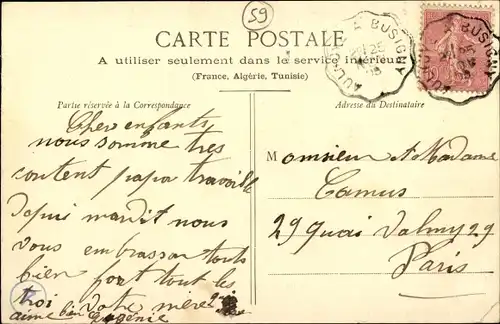 59
CARTE POSTALE
A utiliser seulement dans le service intérieur
(France, Algérie, Tunisie)
Partie réservée à la Correspondance
Adresse du Destinataire
Cher enfants
nous somme tres
content papa travaille
depui mardit nous
vous embrasson touts
bien fort tout les
troi votre mère qui
aime bien Eugénie
Monsieur et Madame
Camus
29 quai Valmy 29
Paris
A BUSIGNY
25